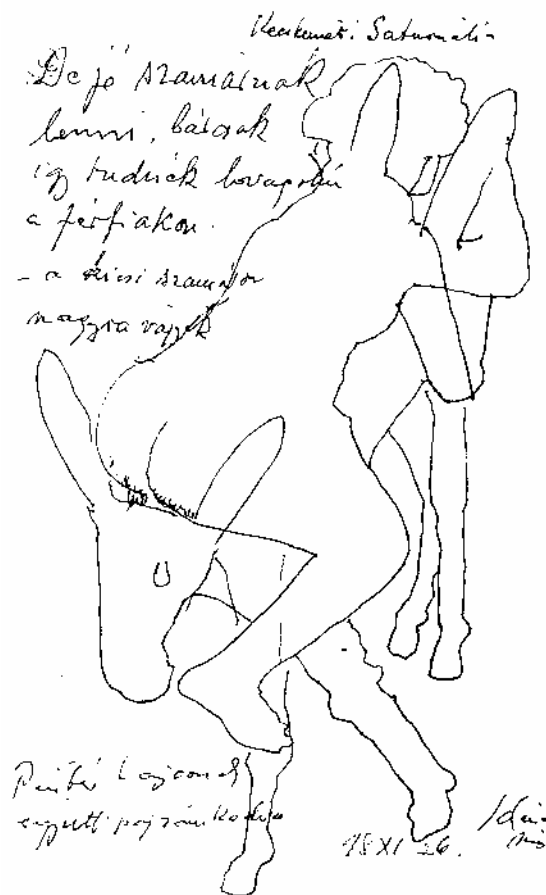 Kecskeméti Saturnália
De jó szamárnak
lenni, bárcsak
így tudnék lovagolni
a férfiakon.
- a kicsi szamár
nagyra vágyik
Pintér Lajosnak
együtt pajzánkodva
78 XI 26.